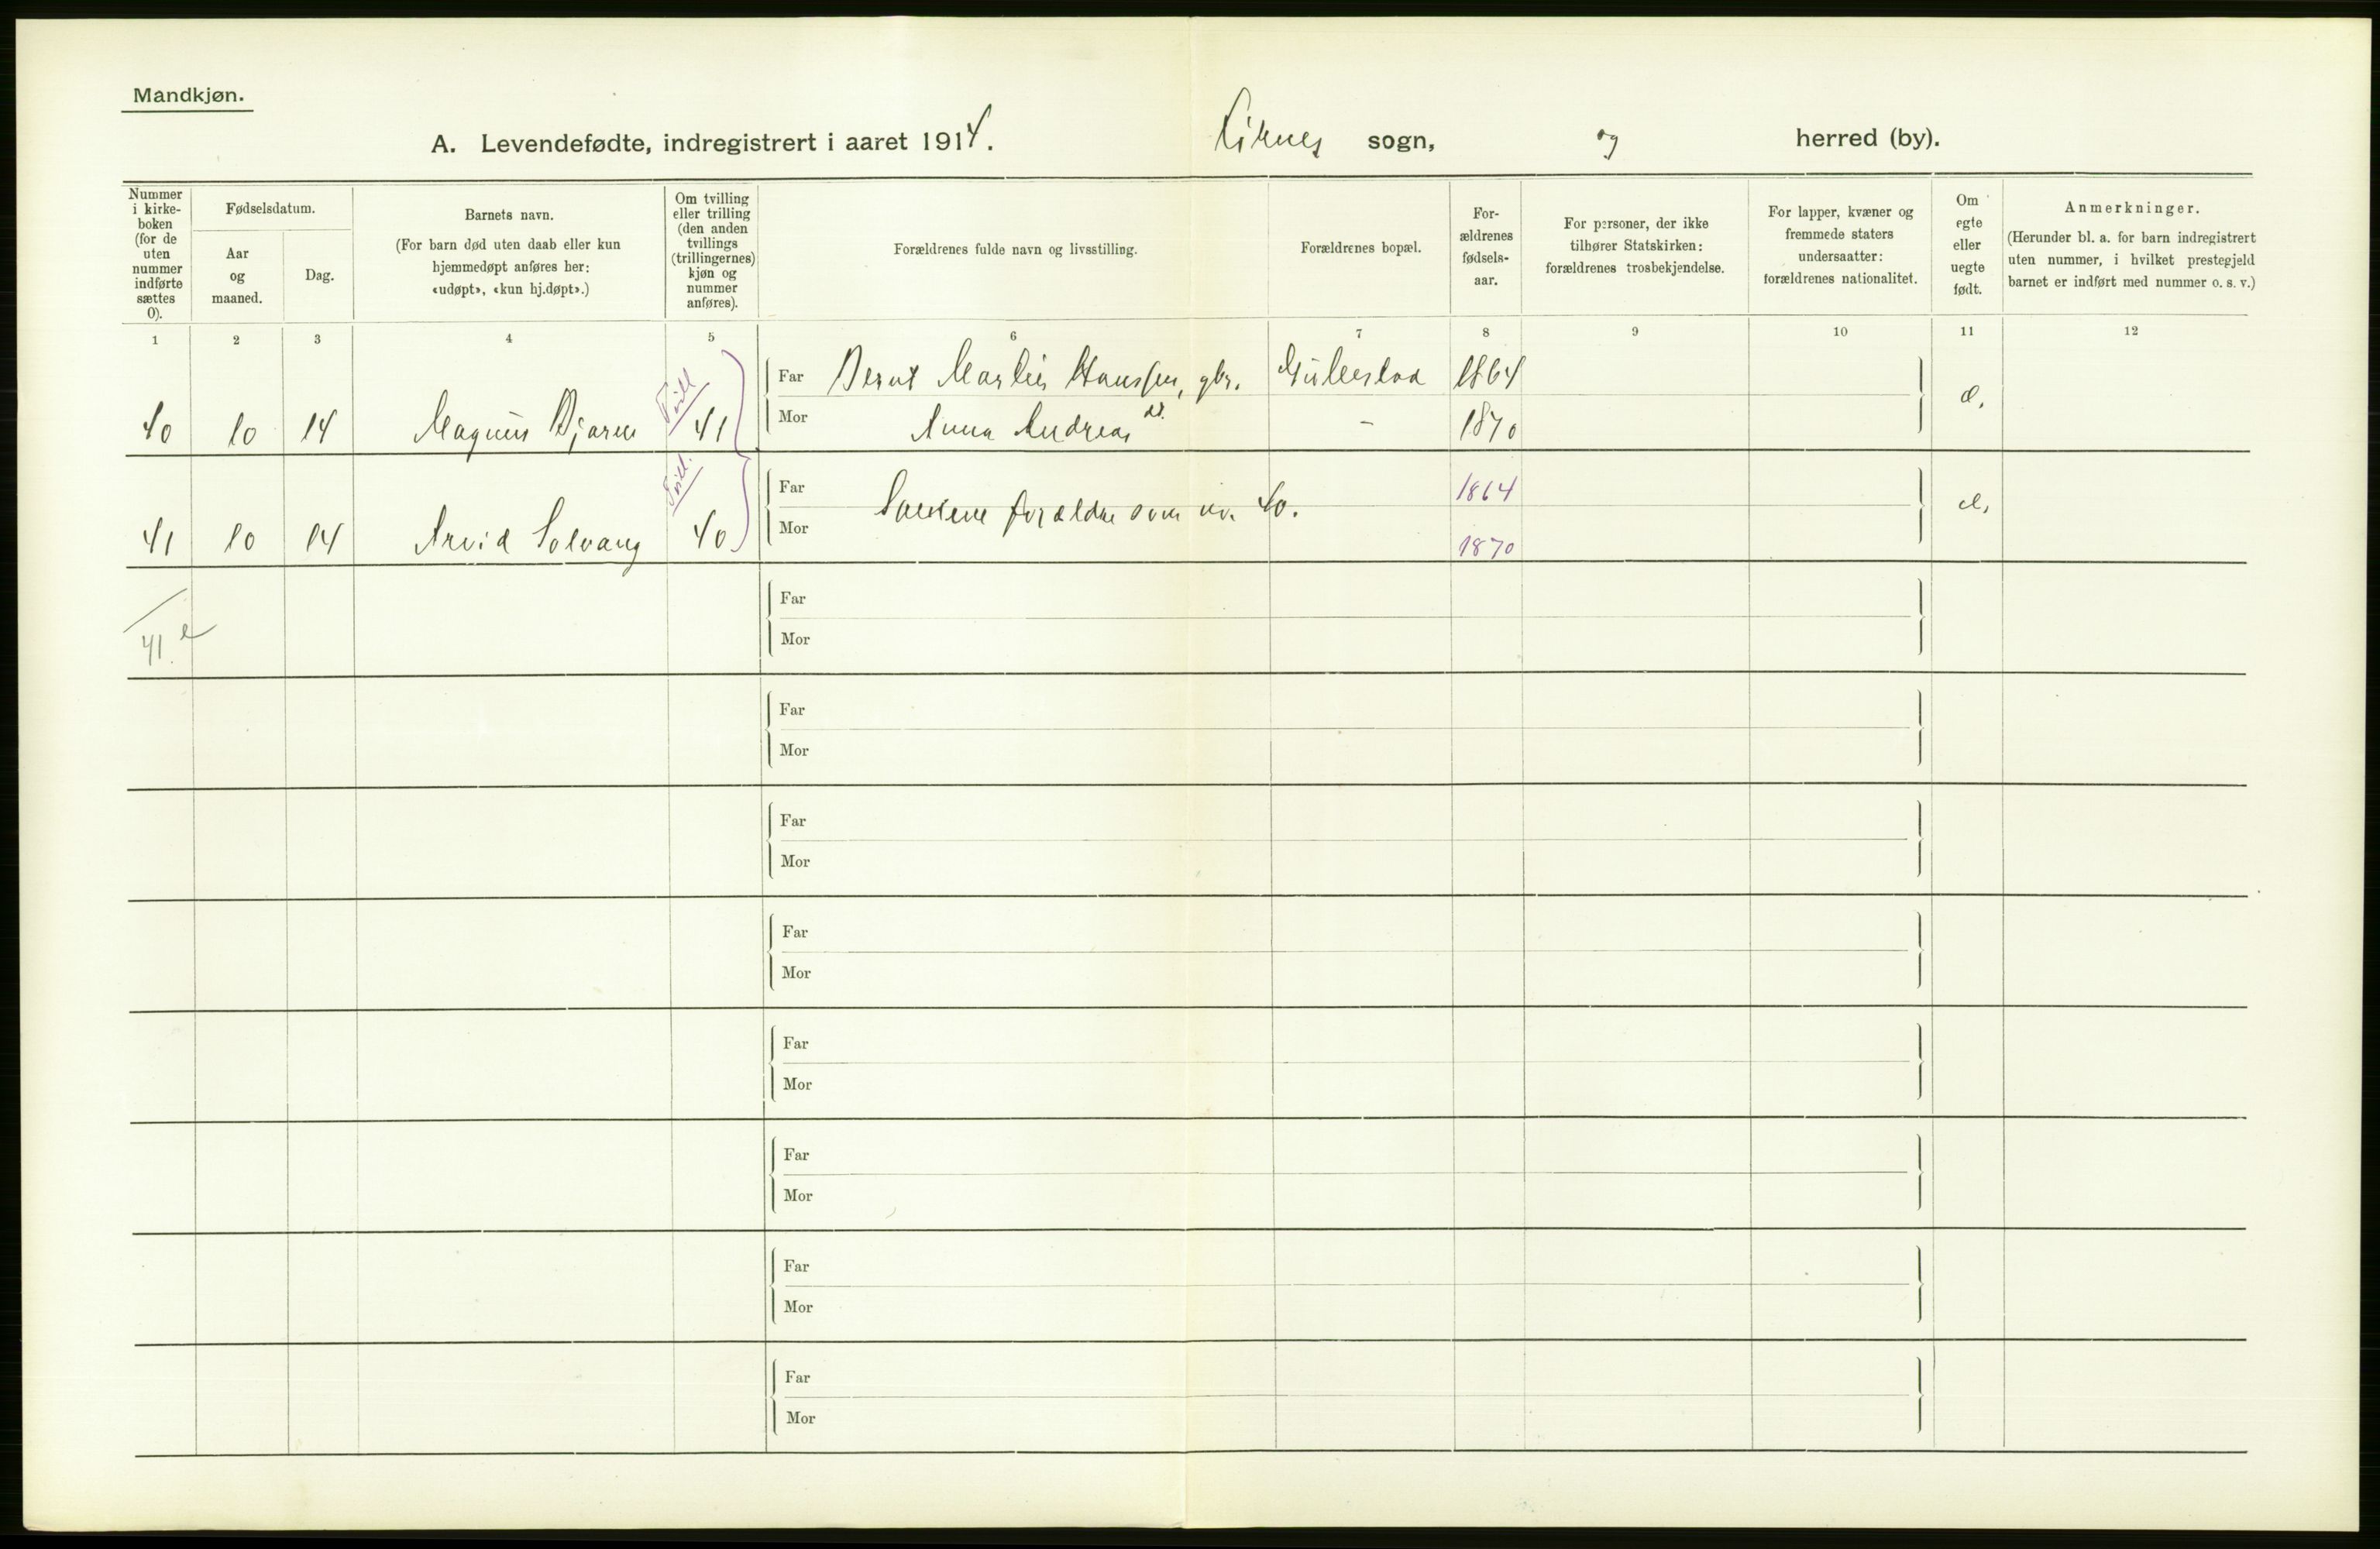 Mandkjøn.
A. Levendefødte, indregistrert i aaret 1914. sogn, og herred (by).
Nummer i kirke-boken (for de uten nummer indførte sættes 0).
Fødselsdatum.
Aar og maaned.
Dag.
Barnets navn.
(For barn død uten daab eller kun hjemmedøpt anføres her: «udøpt», «kun hj.døpt».)
Om tvilling eller trilling (den anden tvillings (trillingernes) kjøn og nummer anføres).
Forældrenes fulde navn og livsstilling.
Forældrenes bopæl.
For-ældrenes fødsels-aar.
For personer, der ikke tilhører Statskirken: forældrenes trosbekjendelse.
For lapper, kvæner og fremmede staters undersaatter: forældrenes nationalitet.
Om egte eller uegte født.
Anmerkninger.
(Herunder bl. a. for barn indregistrert uten nummer, i hvilket prestegjeld barnet er indført med nummer o. s. v.)
1 2 3 4 5 6 7 8 9 10 11 12
Far Bernt Hanssen, gbr. 1864
40 10 14 Magnus Bjarne Tvill 41 Mor Anna Andreas dt. - 1870 e.
Far 1864
41 10 14 Arvid Solvang Tvill. 40 Samme forældre som nr. 40. e.
Mor 1870
Far
41. e
Mor
Far
Mor
Far
Mor
Far
Mor
Far
Mor
Far
Mor
Far
Mor
Far
Mor